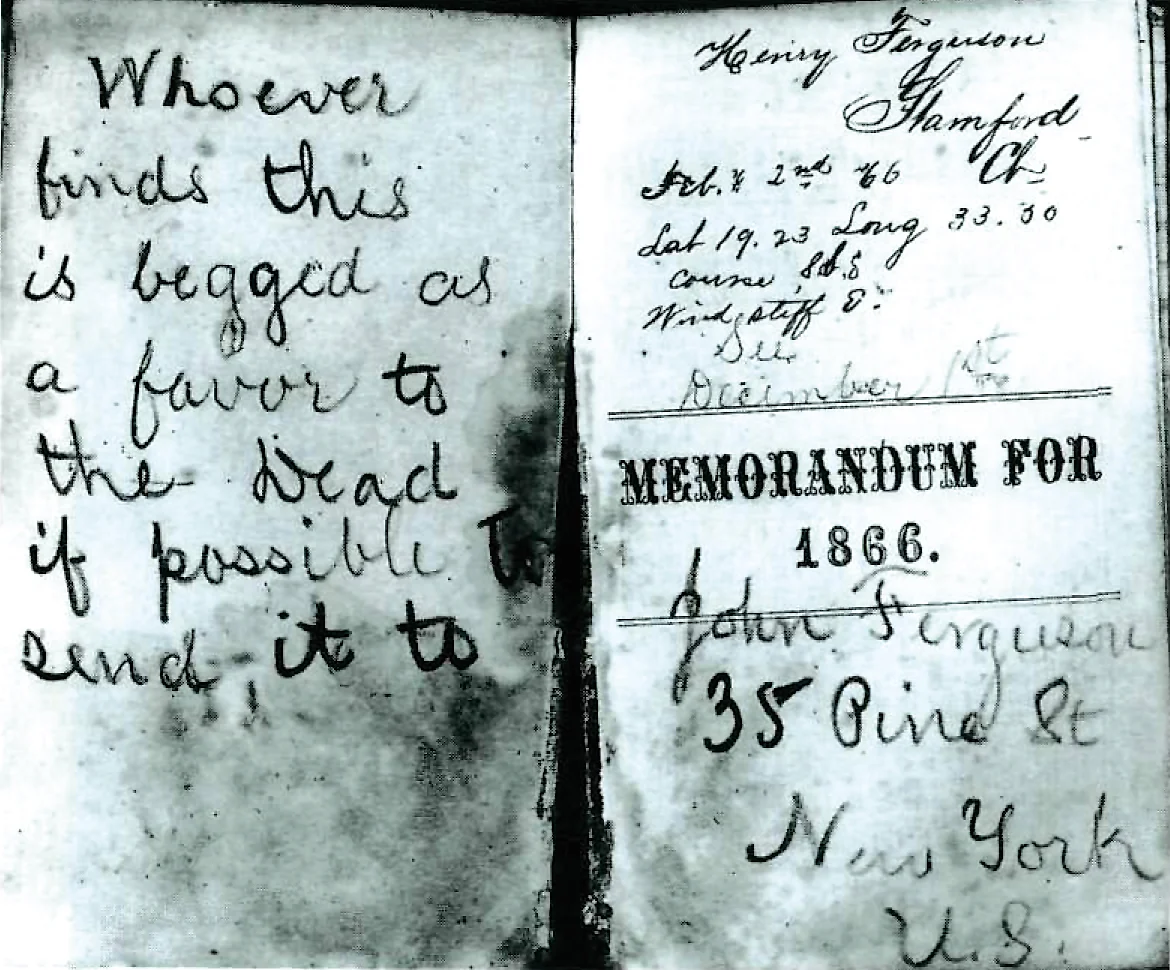 Whoever
finds this
is begged as
a favor to
the Dead
if possible to
send it to
Henry Ferguson
Stamford
Ct
Feb. 2nd 66
Lat 19.23 Long 33.30
course
Wind stiff
December 1st
MEMORANDUM FOR
1866.
John Ferguson
35 Pine St
New York
U.S.